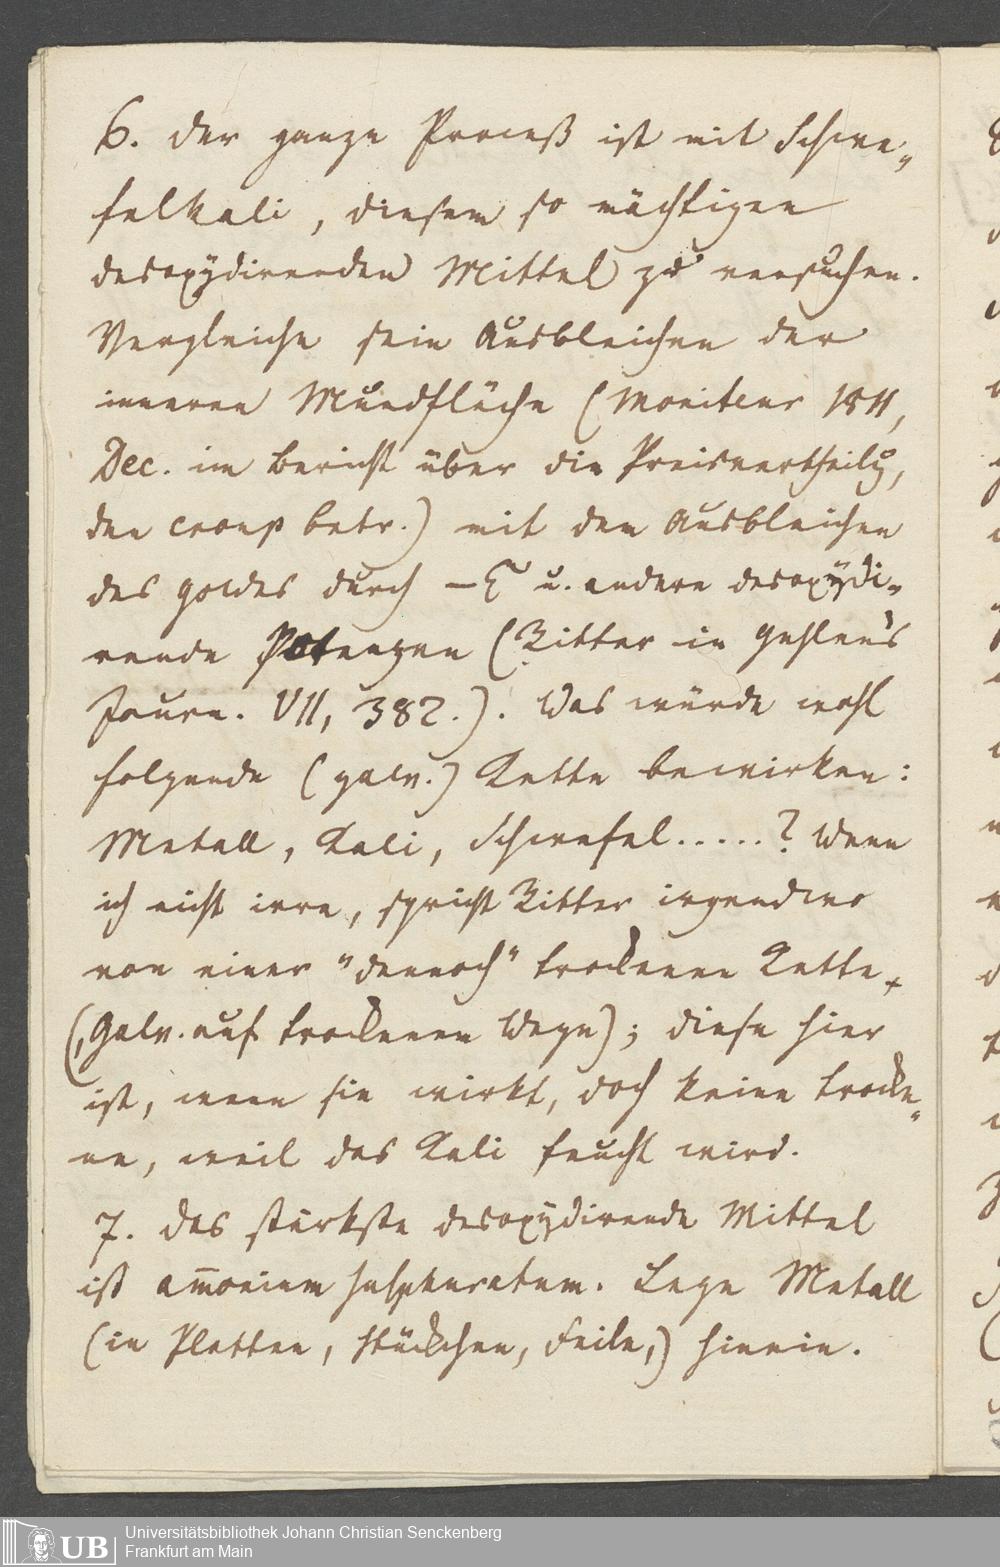 6. Der ganze Proceß ist mit Schwe„
felkali, diesem so mächtigen
desoxÿdirenden Mittel zu versuchen.
Vergleiche sein Ausbleichen der
inneren Mundfläche (Moniteur 1811,
Dec. im Bericht über die Preisvertheilg,
den croup betr.) mit dem Ausbleichen
des Goldes durch – E u. andere desoxÿdi„
rende Potenzen (Ritter in Gehlen's
Journ. VII, 382.). Was würde wohl
folgende (galv.) Kette bewirken:
Metall, Kali, Schwefel.....? Wenn
ich nicht irre, spricht Ritter irgendwo
von einer "dennoch" trockenen Kette
(„Galv. auf trockenem Wege); diese hier
ist, wenn sie wirkt, doch keine trocke„
ne, weil das Kali feucht wird.
7. Das stärkste desoxÿdirende Mittel
ist am̄onium sulphuratum. Lege Metall
(in Platten, Stückchen, Feile,) hinein.
UB
Universitätsbibliothek Johann Christian Senckenberg
Frankfurt am Main